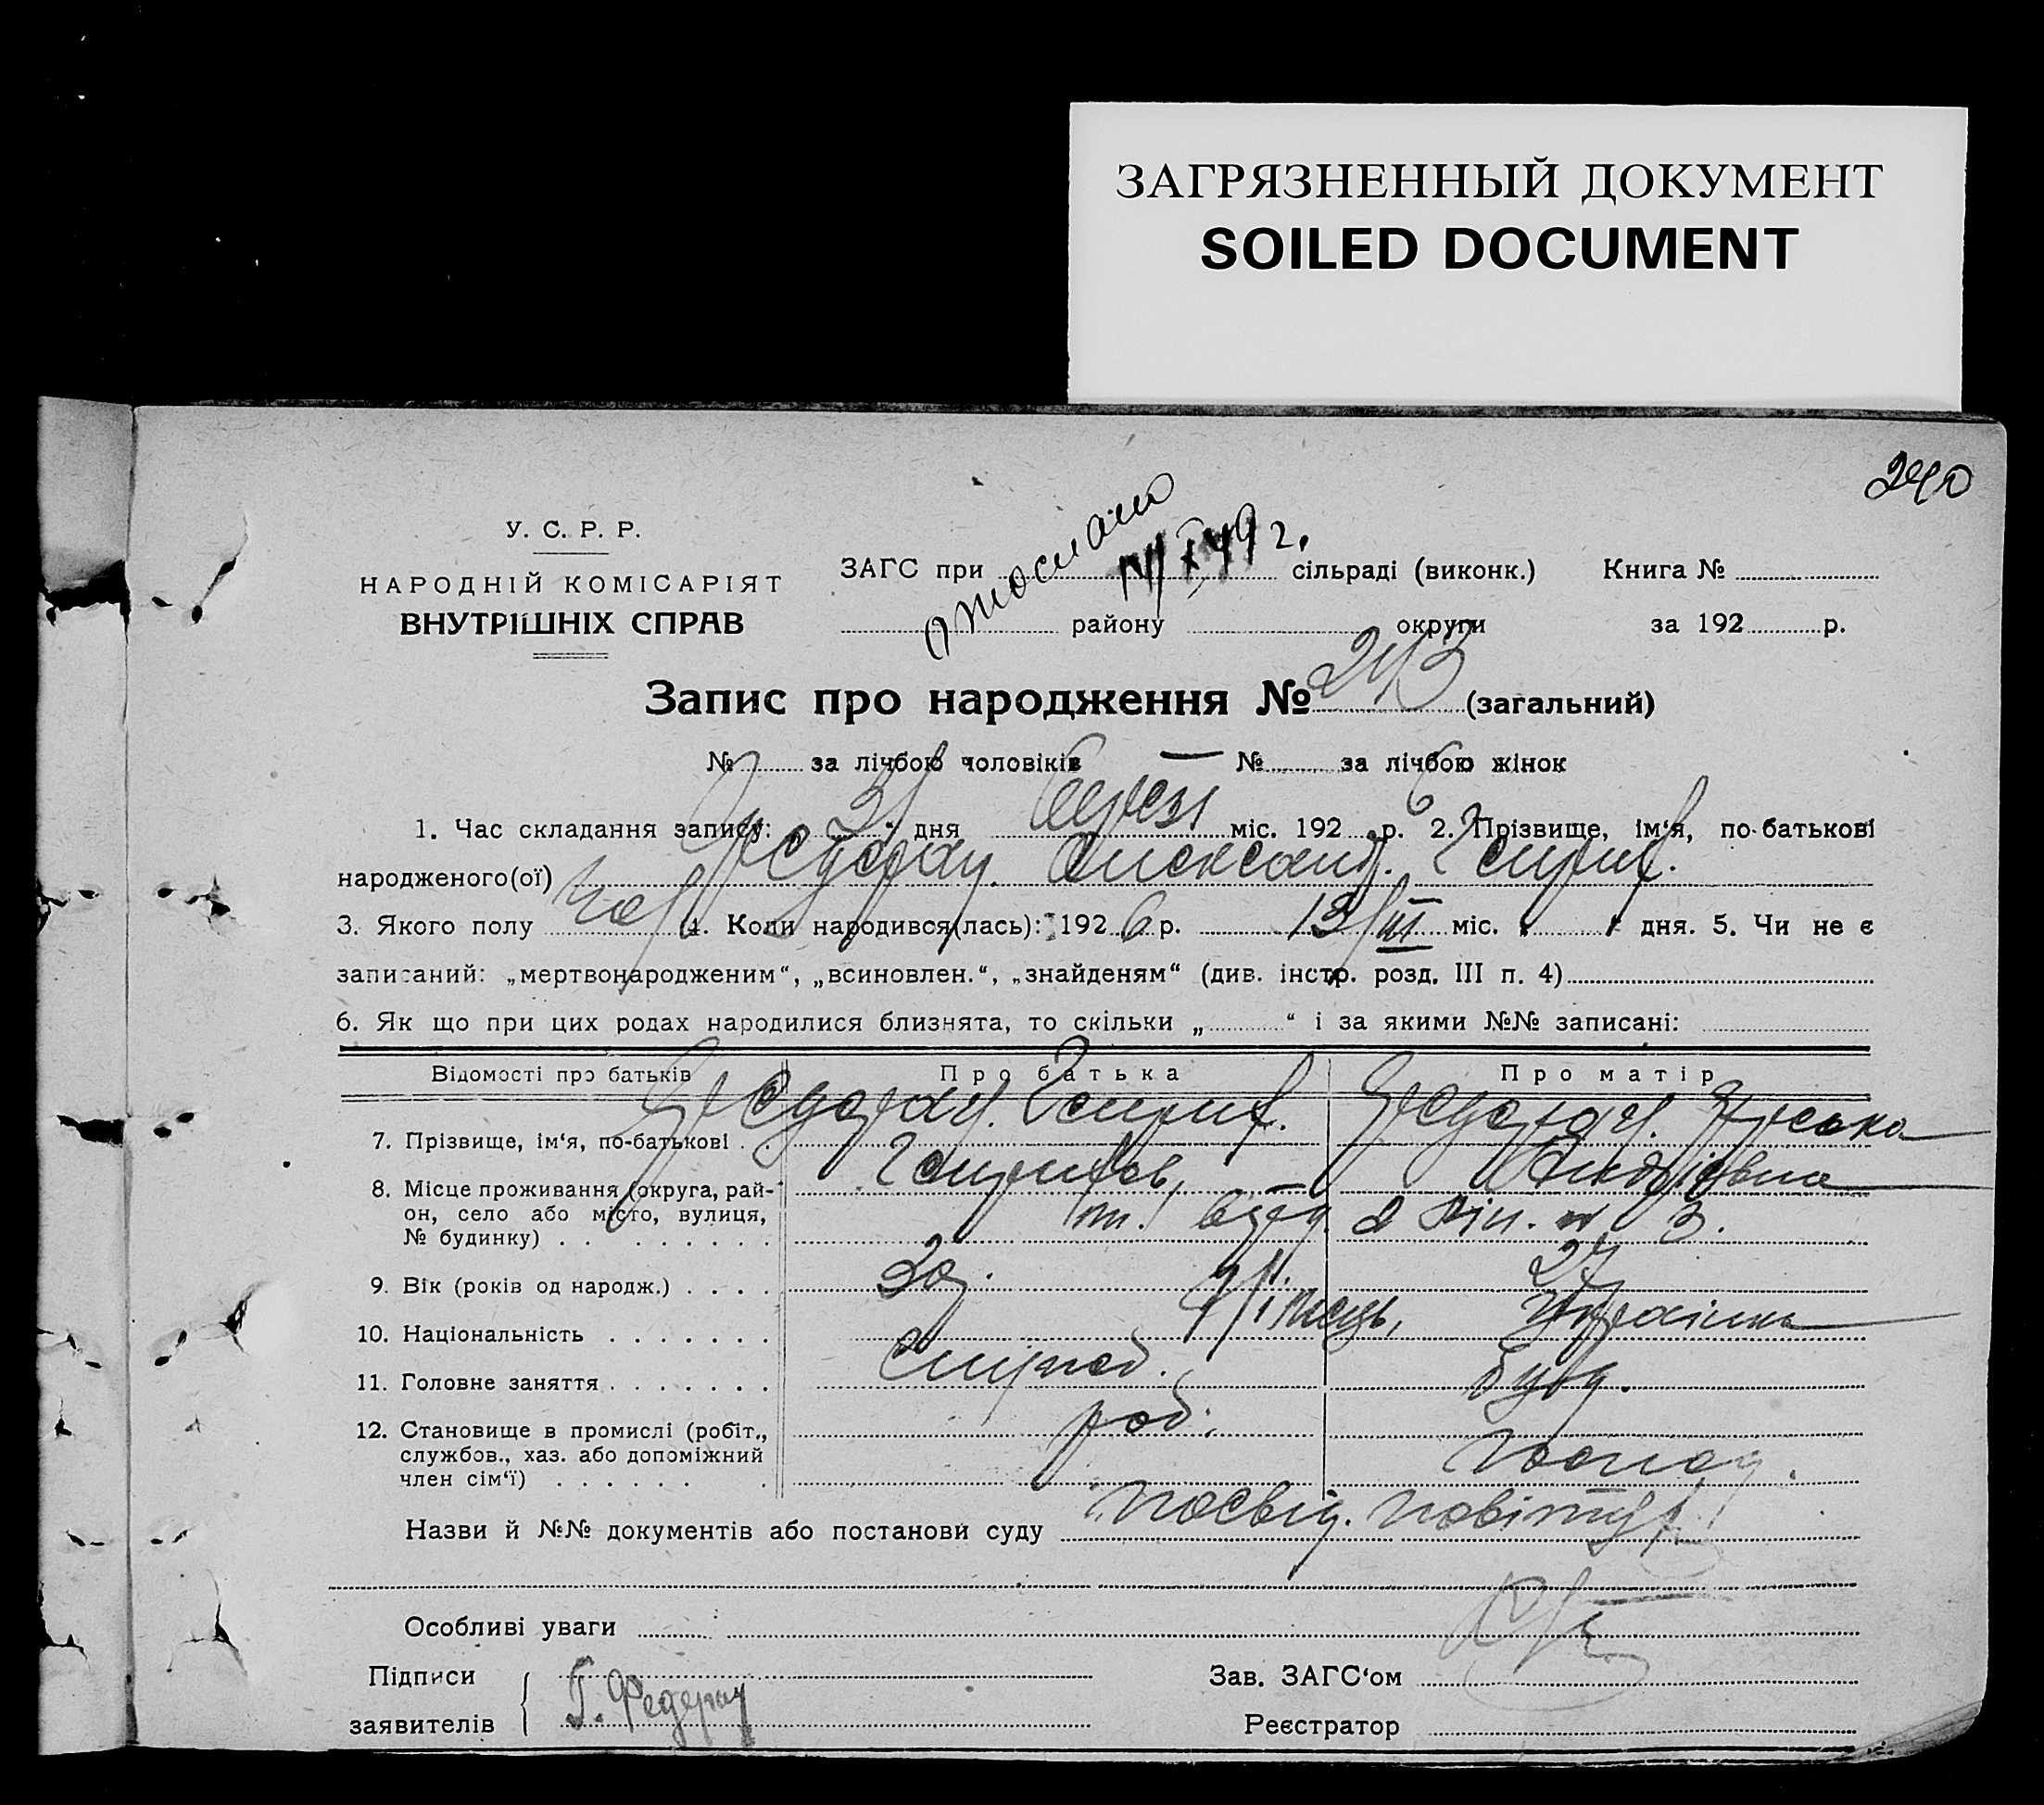 ЗАГРЯЗНЕННЫЙ ДОКУМЕНТ
SOILED DOCUMENT
240
У. С. Р. Р.
НАРОДНІЙ КОМІСАРІЯТ
ВНУТРІШНІХ СПРАВ
ЗАГС при сільраді (виконк.) Книга №
району округи за 192 р.
Запис про народження № 243 (загальний)
№ за лічбою чоловіків — № за лічбою жінок
1. Час складання запису: 31 дня міс. 1926 р. 2. Прізвище, ім'я, по-батькові
народженого(ої) Федерау. Александ. Генрих.
3. Якого полу чол 4. Коли народився(лась): 1926 р. 13/III міс. „ " дня. 5. Чи не є
записаний: „мертвонародженим", „всиновлен.", „знайденям" (див. інстр. розд. III п. 4)
6. Як що при цих родах народилися близнята, то скільки „ " і за якими №№ записані:
Відомості про батьків Про батька Про матір
7. Прізвище, ім'я, по-батькові Федерау. Генрих. Федерау.
Генрихов. Андріевна
8. Місце проживання (округа, рай-
он, село або місто, вулиця,
№ будинку) 3.
9. Вік (років од народж.) 27
10. Національність Німець, Українка
11. Головне заняття
12. Становище в промислі (робіт.,
службов., хаз. або допоміжний
член сім'ї) роб.
Назви й №№ документів або постанови суду посвід.
Особливі уваги
Підписи Зав. ЗАГС'ом
заявителів Г. Федерау Реєстратор